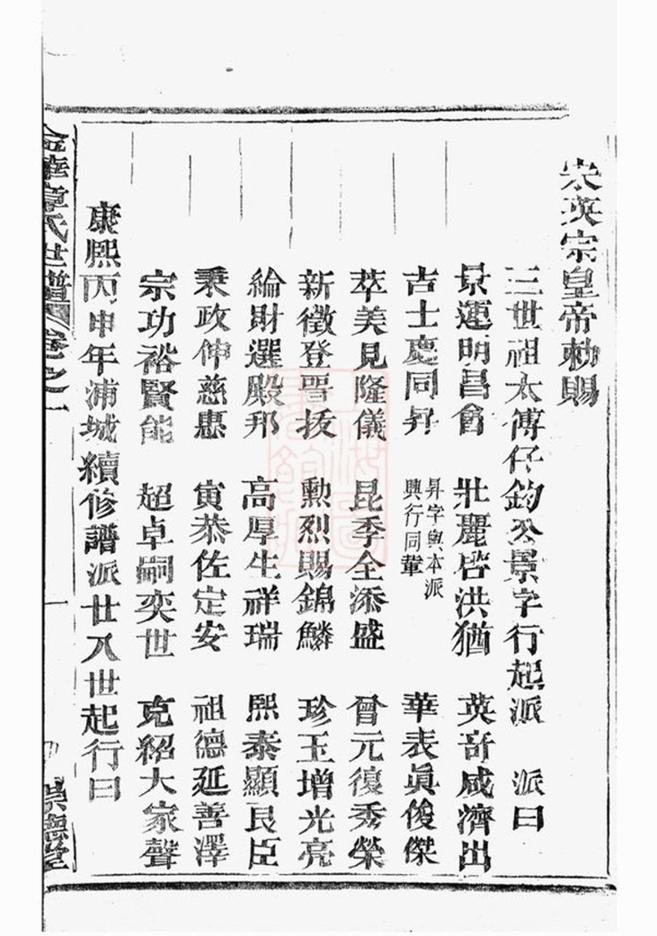 宋英宗皇帝勅賜
三世祖太傅仔鈞公景字行起派　派曰
景運明昌會　壯麗啓洪猶　英奇咸濟出
吉士慶同昇　昇字與本派興行同輩　華表眞俊傑
萃美見隆儀　昆季全添盛　曾元復秀榮
新徵登晋拔　勳烈賜錦鱗　珍玉增光亮
綸財選殿邦　高厚生祥瑞　熙泰顯良臣
秉政伸慈惠　寅恭佐定安　祖德延善澤
宗功裕賢能　超卓嗣奕世　克紹大家聲
康熙丙申年浦城續修譜派廿八世起行曰
金華章氏世譜　卷之一
一
崇德堂